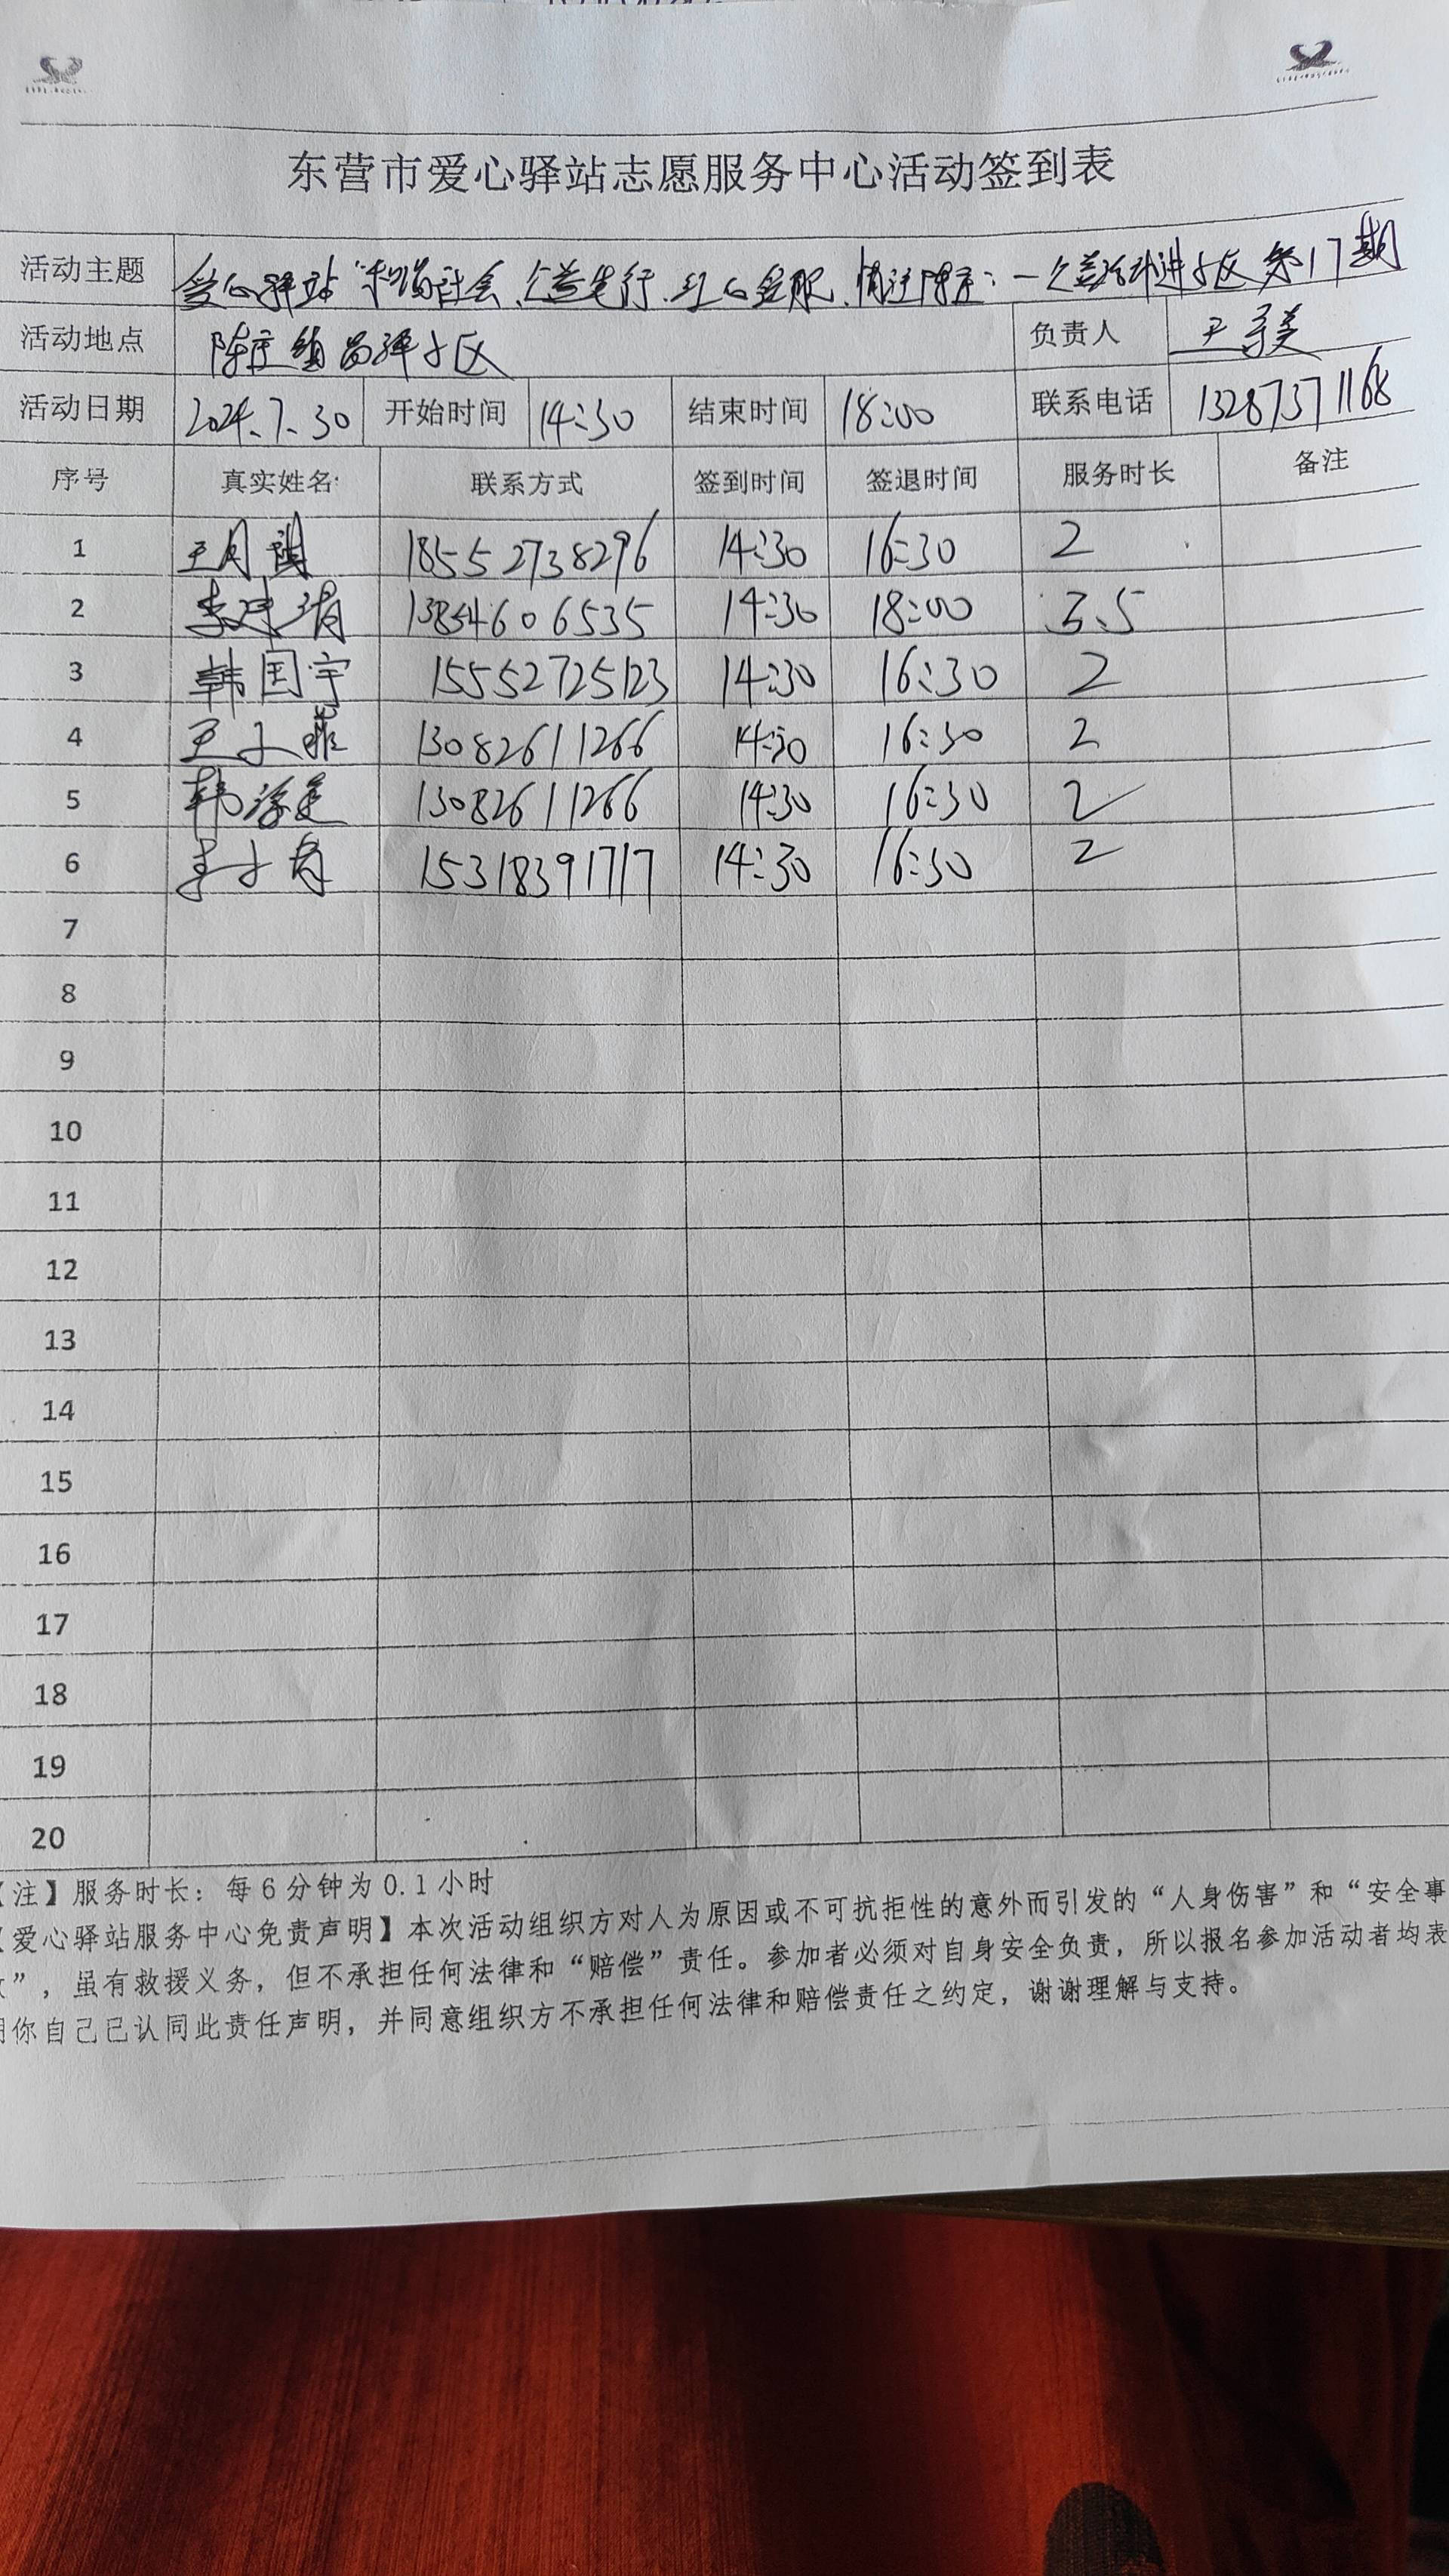 东营市爱心驿站志愿服务中心活动签到表
活动主题 爱心驿站 和谐社会、公益先行、红心 情 陈庄 公益活动进小区第17期
活动地点 陈庄镇 小区 负责人 王
活动日期 2024.7.30 开始时间 14:30 结束时间 18:00 联系电话 13287371168
序号 真实姓名 联系方式 签到时间 签退时间 服务时长 备注
1 王月 18552738296 14:30 16:30 2
2 李 13854606535 14:30 18:00 3.5
3 韩国宇 15552725123 14:30 16:30 2
4 王子菲 13082611266 14:30 16:30 2
5 韩 13082611266 14:30 16:30 2
6 李 15318391717 14:30 16:30 2
7
8
9
10
11
12
13
14
15
16
17
18
19
20
【注】服务时长：每6分钟为0.1小时
【爱心驿站服务中心免责声明】本次活动组织方对人为原因或不可抗拒性的意外而引发的“人身伤害”和“安全事
”，虽有救援义务，但不承担任何法律和“赔偿”责任。参加者必须对自身安全负责，所以报名参加活动者均表
明你自己已认同此责任声明，并同意组织方不承担任何法律和赔偿责任之约定，谢谢理解与支持。